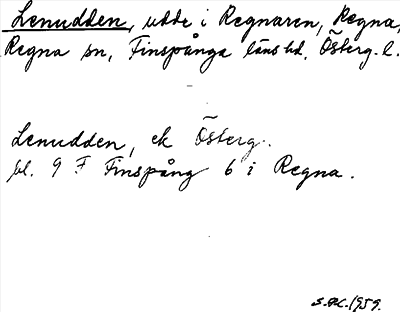 Lenudden, udde i Regnaren, Regna,
Regna sn, Finspånga läns hd, Österg. l.
Lenudden, ek Österg.
bl. 9 F Finspång 6 i Regna.
1959.